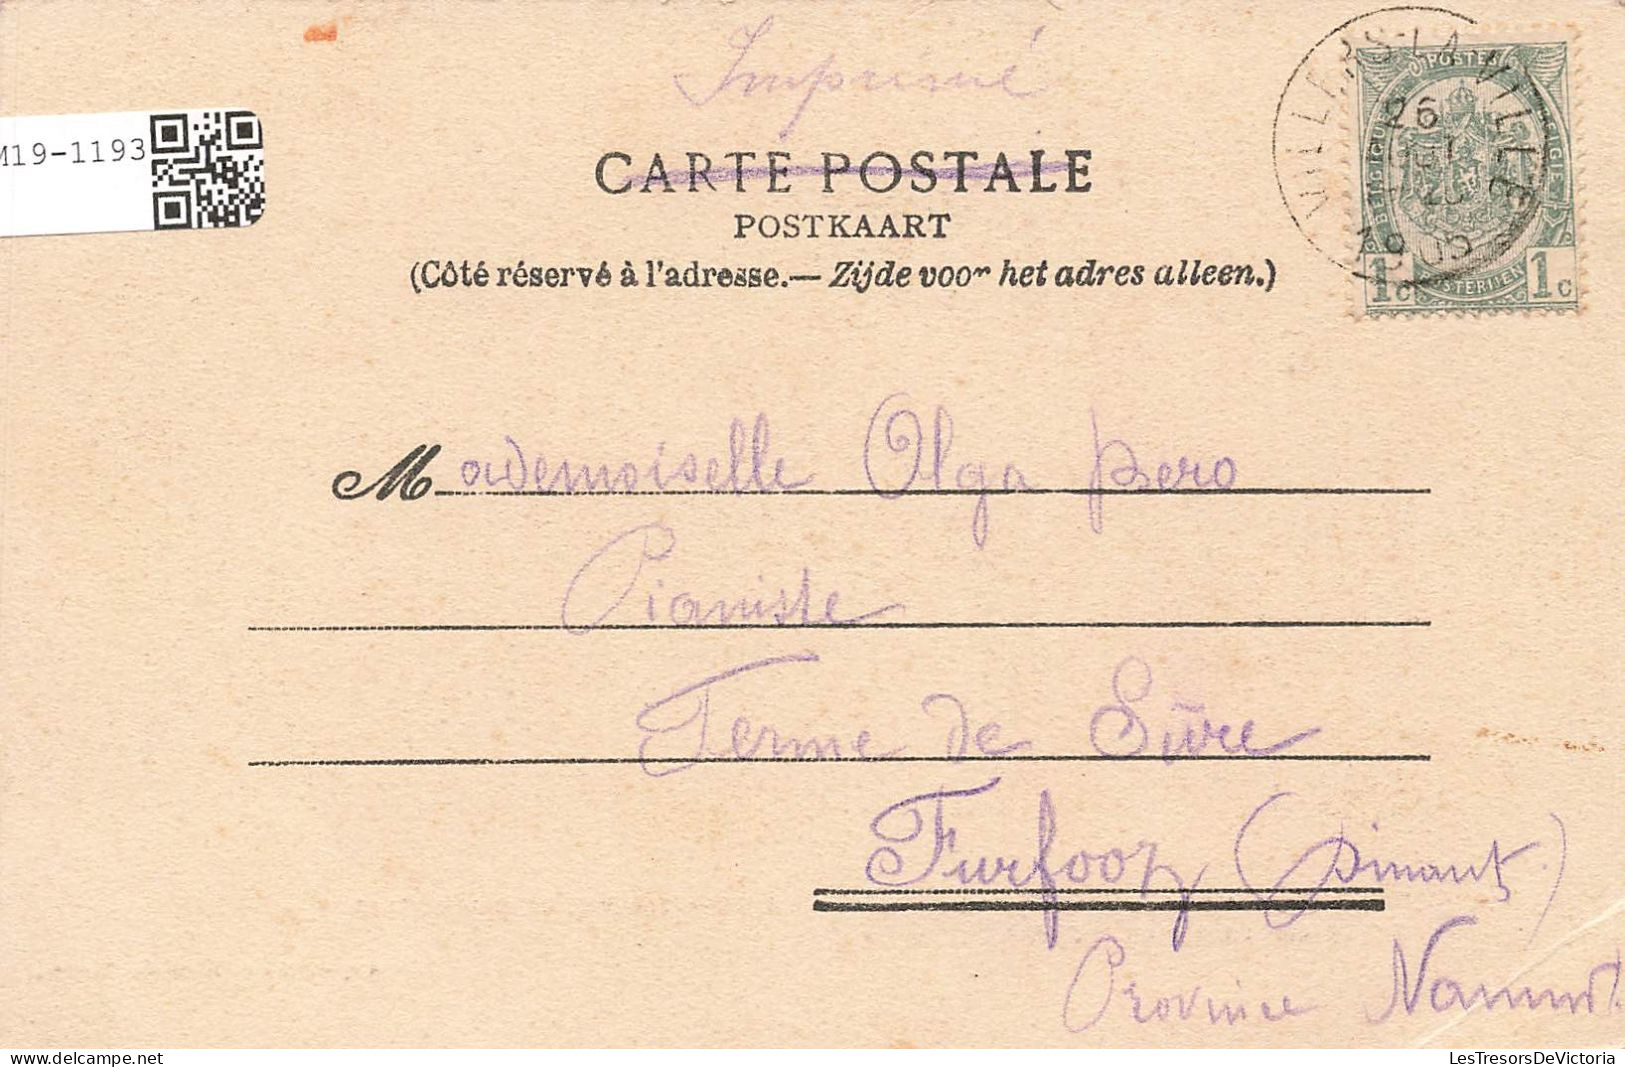 Imprimé
CARTE POSTALE
POSTKAART
(Côté réservé à l'adresse.— Zijde voor het adres alleen.)
M19-1193
VILLERS-LA-VILLE
26
1905
POSTES
BELGIQUE BELGIË
1c POSTERIJEN 1c
Mademoiselle Olga Pero
Pianiste
Ferme de Sûre
Furfooz (Dinant)
Province Namur
LesTresorsDeVictoria